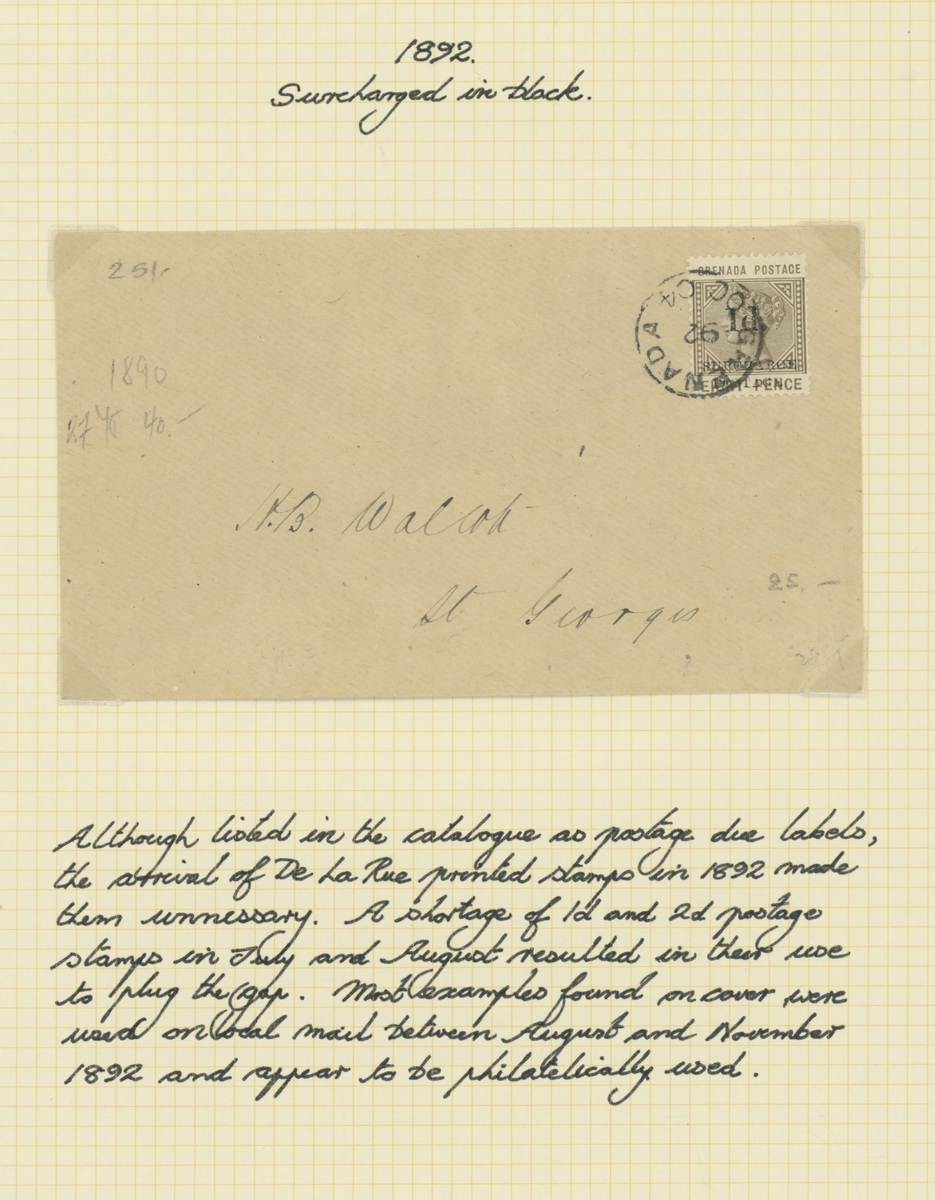 1892.
Surcharged in black.
251-
GRENADA POSTAGE
1d
SURCHARGE
PENCE
92
1890
40.-
H.B. Walcott
25.-
St Georges
Although listed in the catalogue as postage due labels,
the arrival of De La Rue printed stamps in 1892 made
them unnessary. A shortage of 1d and 2d postage
stamps in July and August resulted in their use
to plug the gap. Most examples found on cover were
used on local mail between August and November
1892 and appear to be philatelically used.